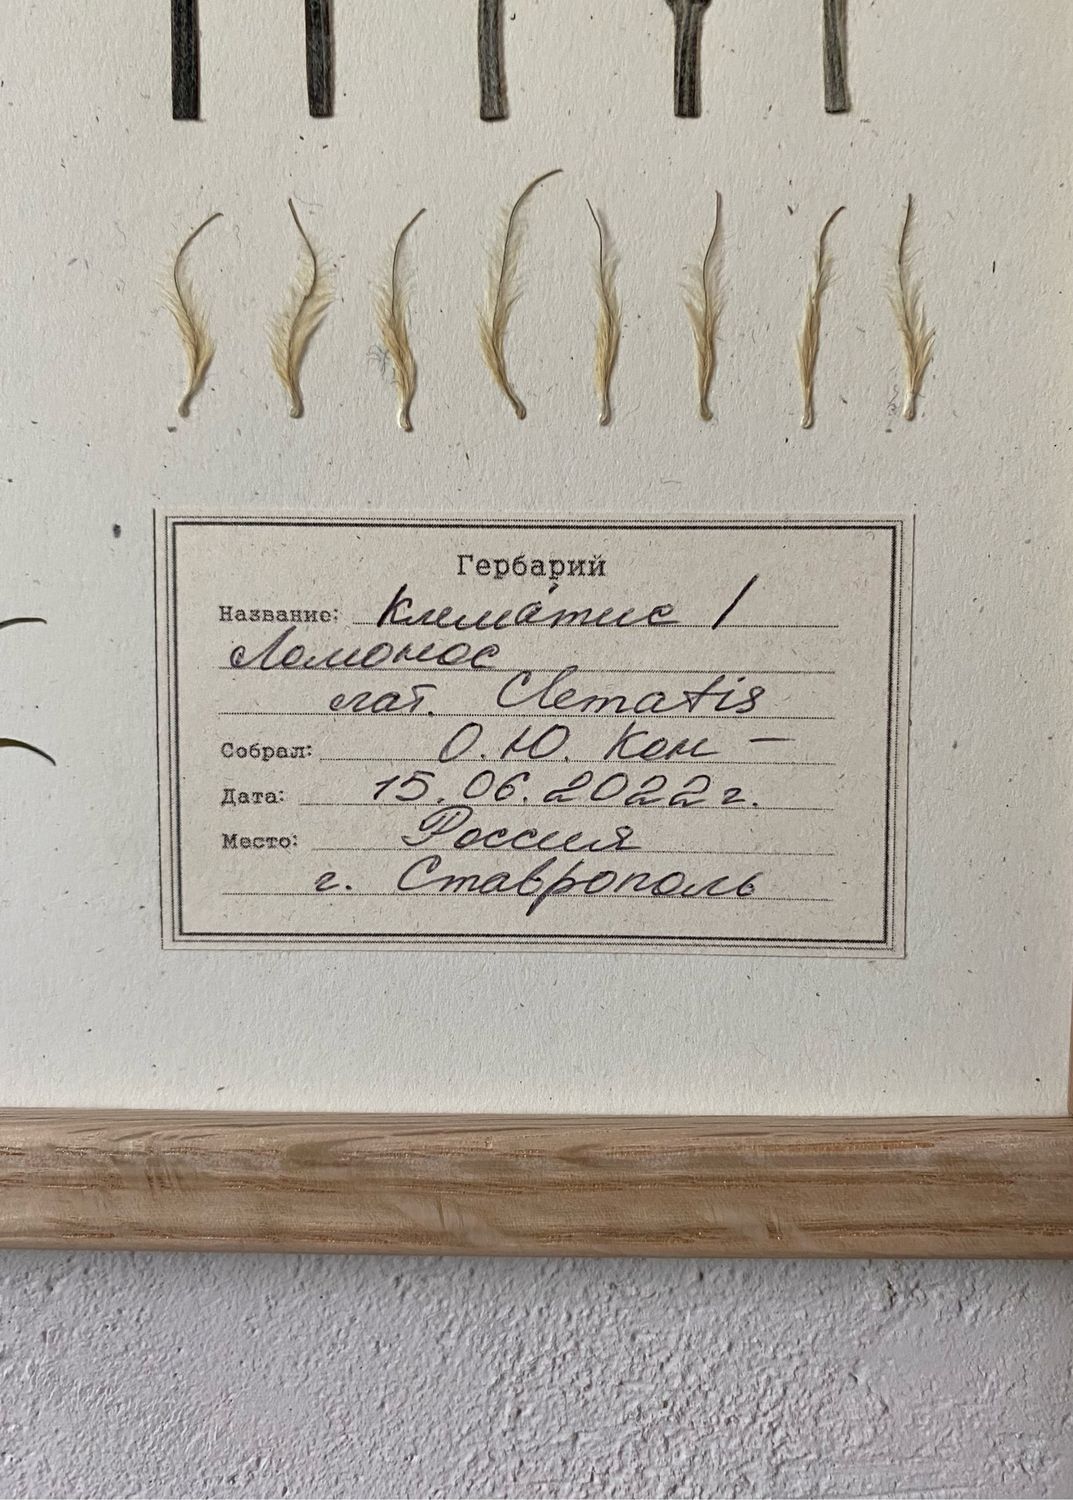 Гербарий
Название: Клема́тис /
Ломонос
лат. Clematis
Собрал: О.Ю. Кон —
Дата: 15.06.2022 г.
Место: Россия
г. Ставрополь